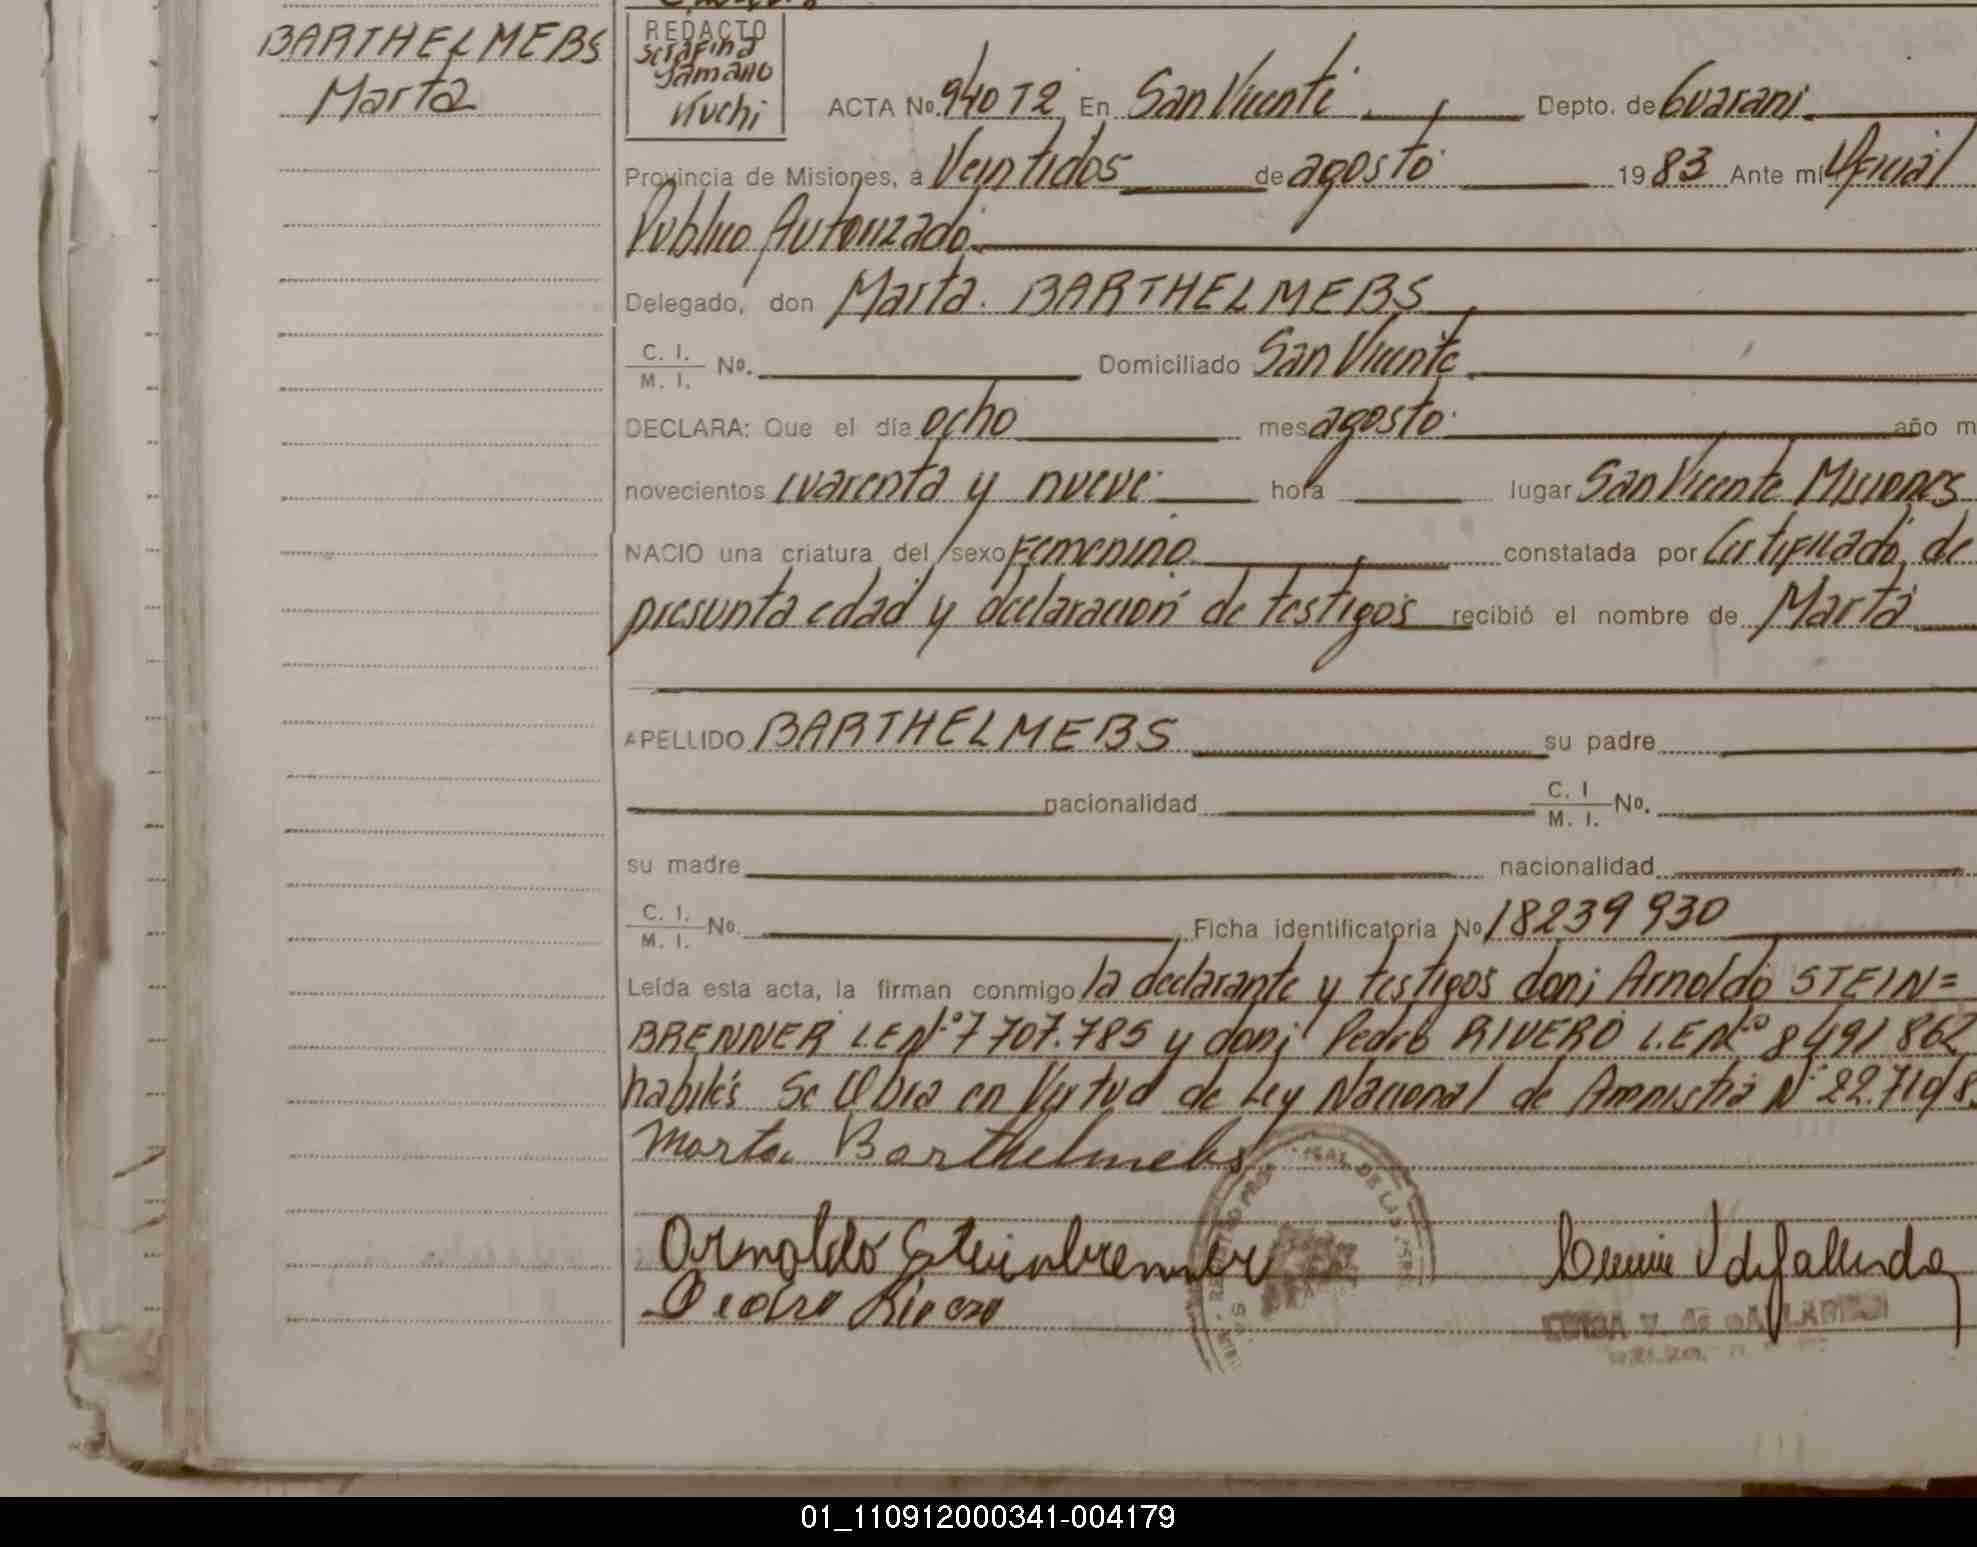 BARTHELMEBS
Marta
REDACTO
Serafina
Kuchi
ACTA No. 940 T2 En San Vicente Depto. de Guarani
Provincia de Misiones, a Veintidos de agosto 1983 Ante mi Oficial
Publico Autorizado
Delegado, don Marta BARTHELMEBS
C. I.
M. I. No. Domiciliado San Vicente
DECLARA: Que el día ocho mes agosto año m
novecientos cuarenta y nueve hora lugar San Vicente Misiones
NACIO una criatura del sexo Femenino constatada por Certificado de
presunta edad y declaracion de testigos recibió el nombre de Marta
APELLIDO BARTHELMEBS su padre
nacionalidad C. I.
M. I. No.
su madre nacionalidad
C. I.
M. I. No. Ficha identificatoria No 18239930
Leída esta acta, la firman conmigo la declarante y testigos don; Arnoldo STEIN=
BRENNER L.E Nº 7707.785 y don; Pedro RIVERO L.E Nº 8491862
habiles Se Labra en Virtud de Ley Nacional de Amnistia Nº
Marta Barthelmebs
Arnoldo Steinbrenner
Pedro Rivero
01_110912000341-004179